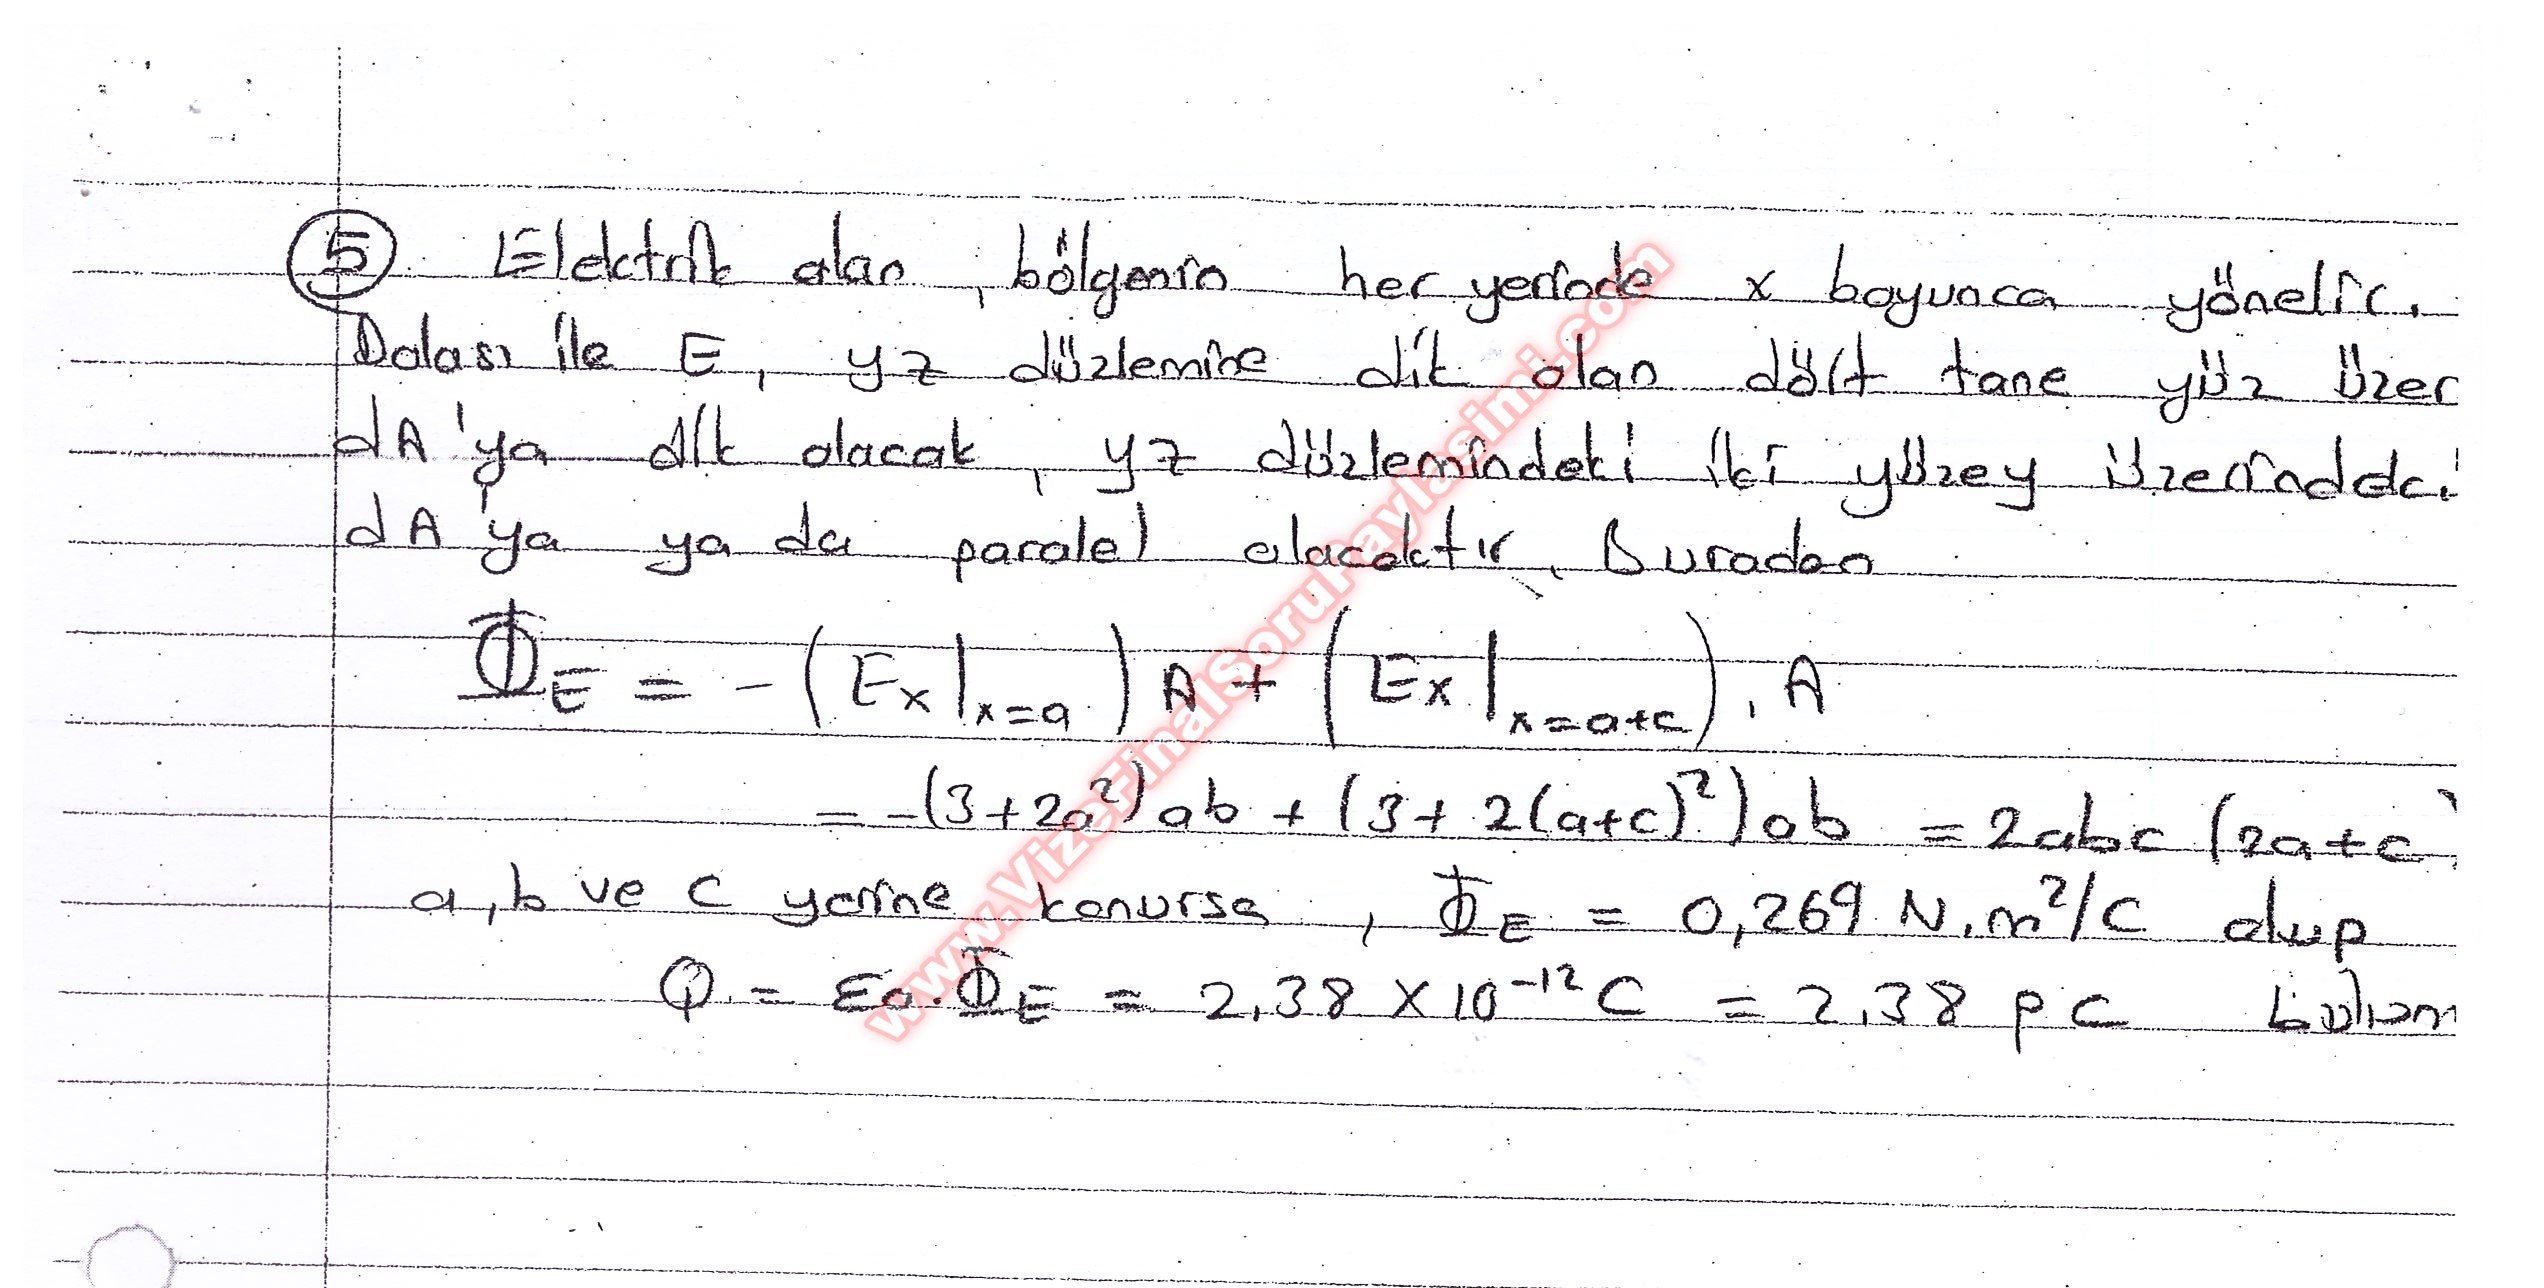 5 Elektrik alan, bölgenin her yerinde x boyunca yönelir.
Dolası ile E, yz düzlemine dik olan dört tane yüz üzer
dA'ya dik olacak, yz düzlemindeki iki yüzey üzerindeki
dA'ya ya da paralel olacaktır. Buradan
Φ_E = -(Ex|x=a) A + (Ex|x=a+c). A
= -(3+2a²)ab + (3+2(a+c)²)ab = 2abc (2a+c)
a, b ve c yerine konursa, Φ_E = 0,269 N.m²/C olup
Q = ε₀.Φ_E = 2,38 x 10⁻¹² C = 2,38 pC
www.VizeFinalSoruPaylasimi.com